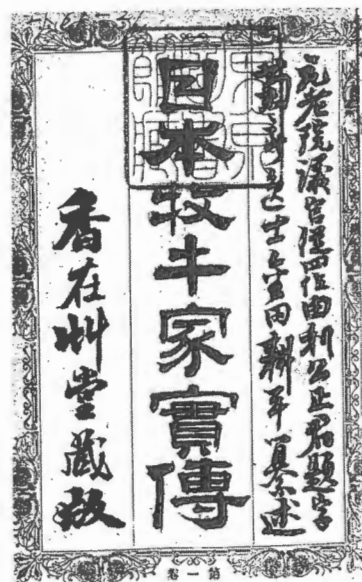 元老院議官從四位由利公正君題字
士金田耕平纂述
日本牧牛家實傳
香在艸堂藏版
第一卷